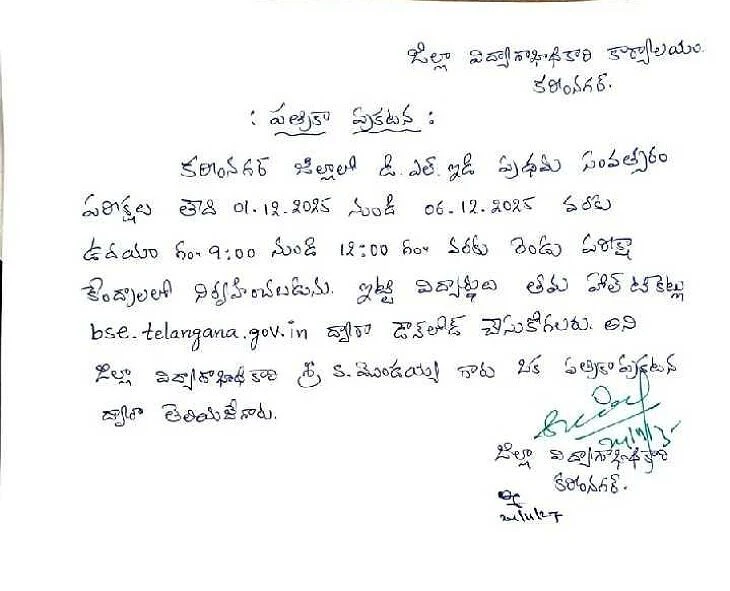 జిల్లా విద్యాశాఖాధికారి కార్యాలయం.
కరీంనగర్.
: పత్రికా ప్రకటన :
కరీంనగర్ జిల్లాలో డి.ఎల్.ఇడి ప్రథమ సంవత్సరం
పరీక్షలు తేది 01.12.2025 నుండి 06.12.2025 వరకు
ఉదయం గం॥ 9:00 నుండి 12:00 గం॥ వరకు రెండు పరీక్షా
కేంద్రాలలో నిర్వహించబడును. ఇట్టి విద్యార్థులు తమ హాల్ టికెట్లు
bse.telangana.gov.in ద్వారా డౌన్‌లోడ్ చేసుకోగలరు. అని
జిల్లా విద్యాశాఖాధికారి శ్రీ కె.మొండయ్య గారు ఒక పత్రికా ప్రకటన
ద్వారా తెలియజేశారు.
జిల్లా విద్యాశాఖాధికారి
కరీంనగర్.